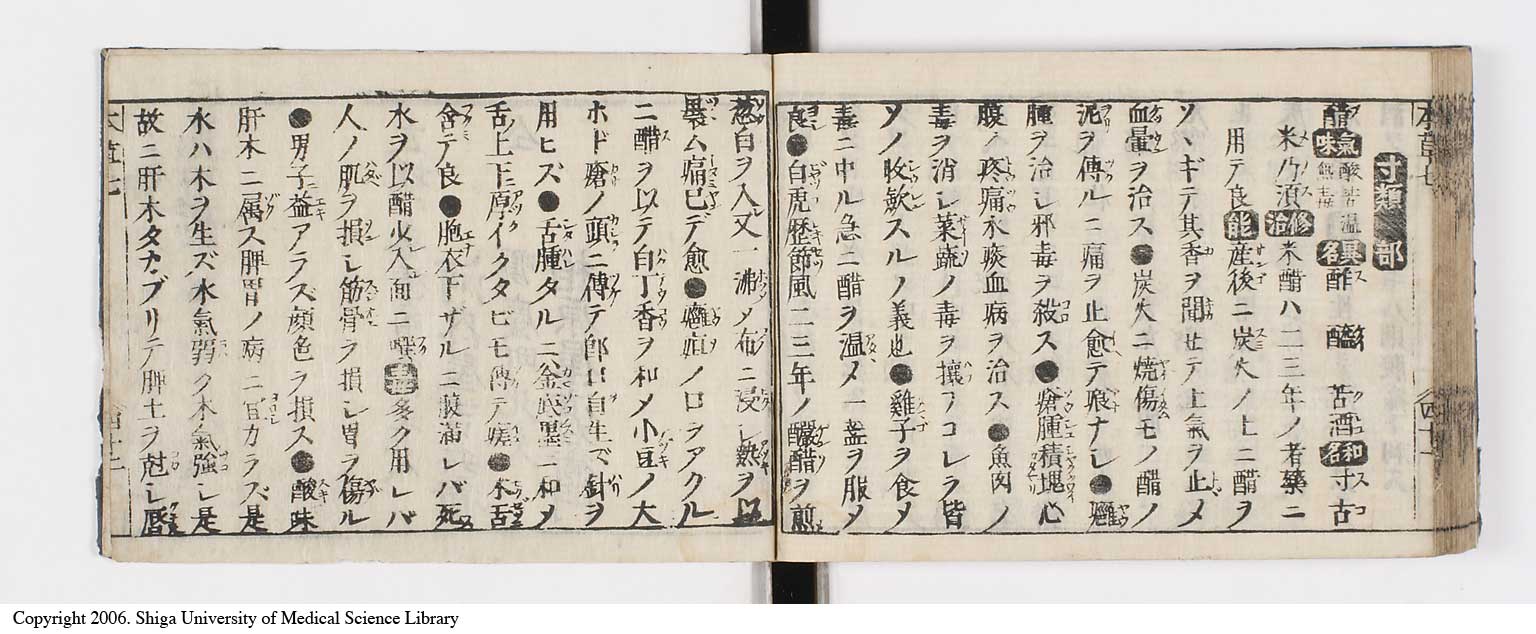 本草七
四十一
寸類部
醋 氣味 酸苦温無毒 異名 酢 醯 苦酒 和名 寸 古
米乃須 修治 米醋ハ二三年ノ者藥ニ
用テ良 能 産後ニ炭火ノ上ニ醋ヲ
ソヽギテ其香ヲ聞セテ上氣ヲ止メ
血暈ヲ治ス●炭火ニ焼傷モノ醋ノ
泥ヲ傳ルニ痛ヲ止愈テ痕ナシ●癰
腫ヲ治シ邪毒ヲ殺ス●瘡腫積塊心
腹ノ疼痛水痰血病ヲ治ス●魚肉ノ
毒ヲ消シ菜蔬ノ毒ヲ攘フコレラ皆
ソノ收斂スルノ義也●雞子ヲ食メ
毒ニ中ル急ニ醋ヲ温メ一盞ヲ服メ
良●白虎歴節風二三年ノ釅醋ヲ煎
葱白ヲ入又一沸メ布ニ浸シ熱ヲ以
裹ム痛已デ愈●癰疽ノ口ヲアクル
ニ醋ヲ以テ白丁香ヲ和メ小豆ノ大
ホド瘡ノ頭ニ傳テ即口自生で針ヲ
用ヒズ●舌腫タルニ釜底墨ニ和メ
舌上下厚イクタビモ傳テ嗟●木舌
含テ良●胞衣下ザルニ腹滿レバ死
水ヲ以醋少入面ニ噀 毒 多ク用レバ
人ノ肌ヲ損シ筋骨ヲ損シ胃ヲ傷ル
●男子益アラズ顔色ヲ損ス●酸味
肝木ニ属ス脾胃ノ病ニ宜カラズ是
水ハ木ヲ生ズ水氣弱ク木氣強シ是
故ニ肝木タカブリテ脾土ヲ尅シ唇
本草七
四十二
Copyright 2006. Shiga University of Medical Science Library